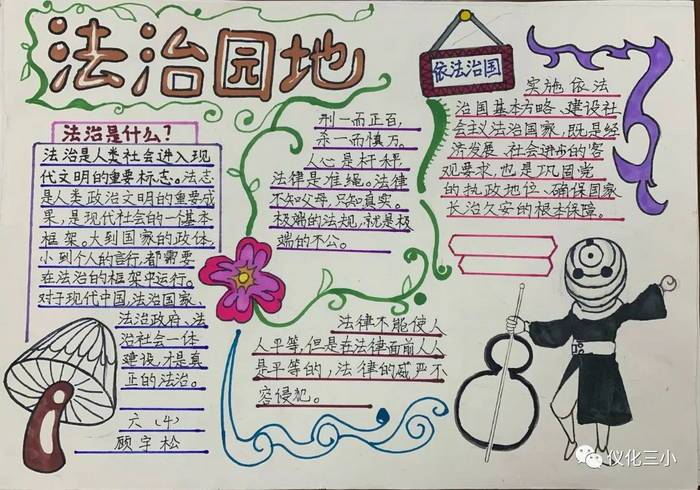 法治园地
法治是什么?
法治是人类社会进入现
代文明的重要标志。法志
是人类政治文明的重要成
果,是现代社会的一个基本
框架。大到国家的政体,
小到个人的言行,都需要
在法治的框架中运行。
对于现代中国,法治国家、
法治政府、法
治社会一体
建设,才是真
正的法治。
六(4)
顾宇松
刑一而正百,
杀一而慎万。
人心是杆秤
法律是准绳。法律
不知父母,只知真实。
极端的法规,就是极
端的不公。
法律不能使人
人平等,但是在法律面前人人
是平等的,法律的威严不
容侵犯。
依法治国
实施依法
治国基本方略、建设社
会主义法治国家,既是经
济发展、社会进步的客
观要求,也是巩固党
的执政地位、确保国家
长治久安的根本保障。
仪化三小